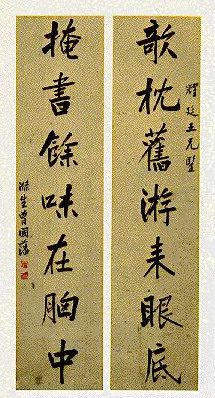 廷五兄
欹枕舊游來眼底
掩書餘味在胸中
滌生曾國藩